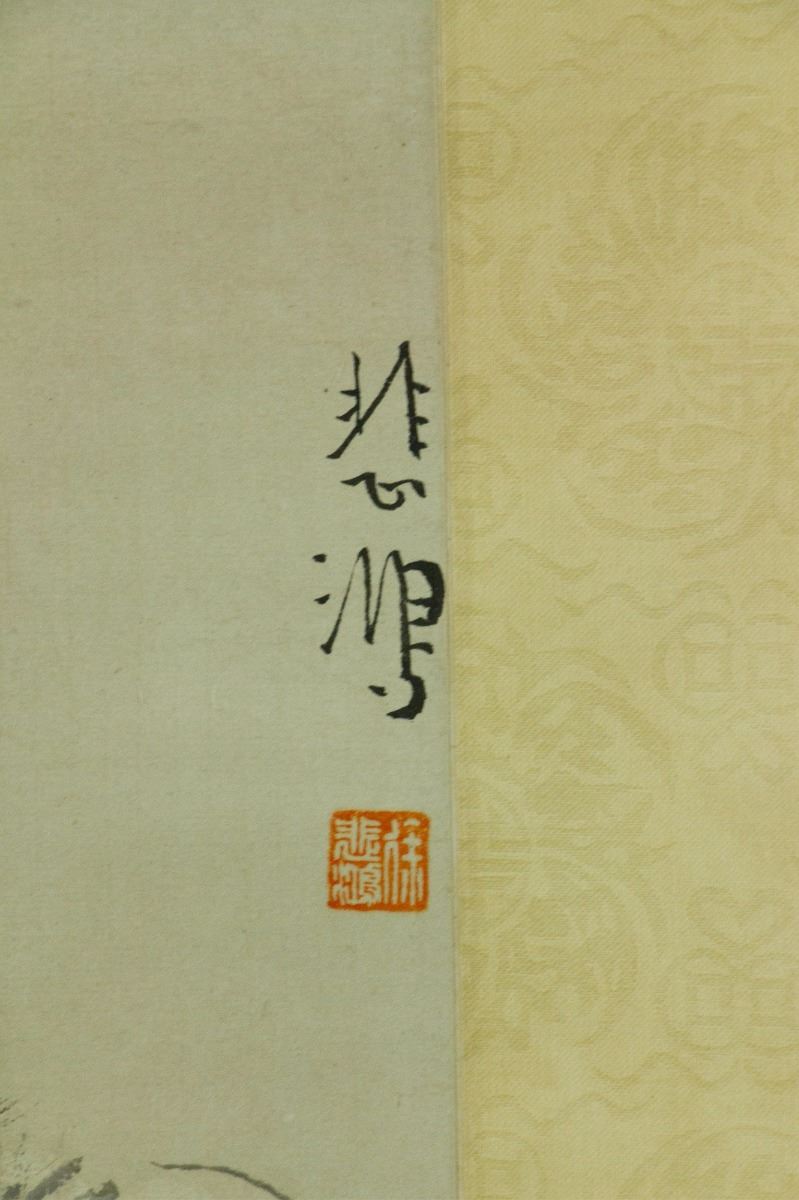 悲鴻
徐悲鴻